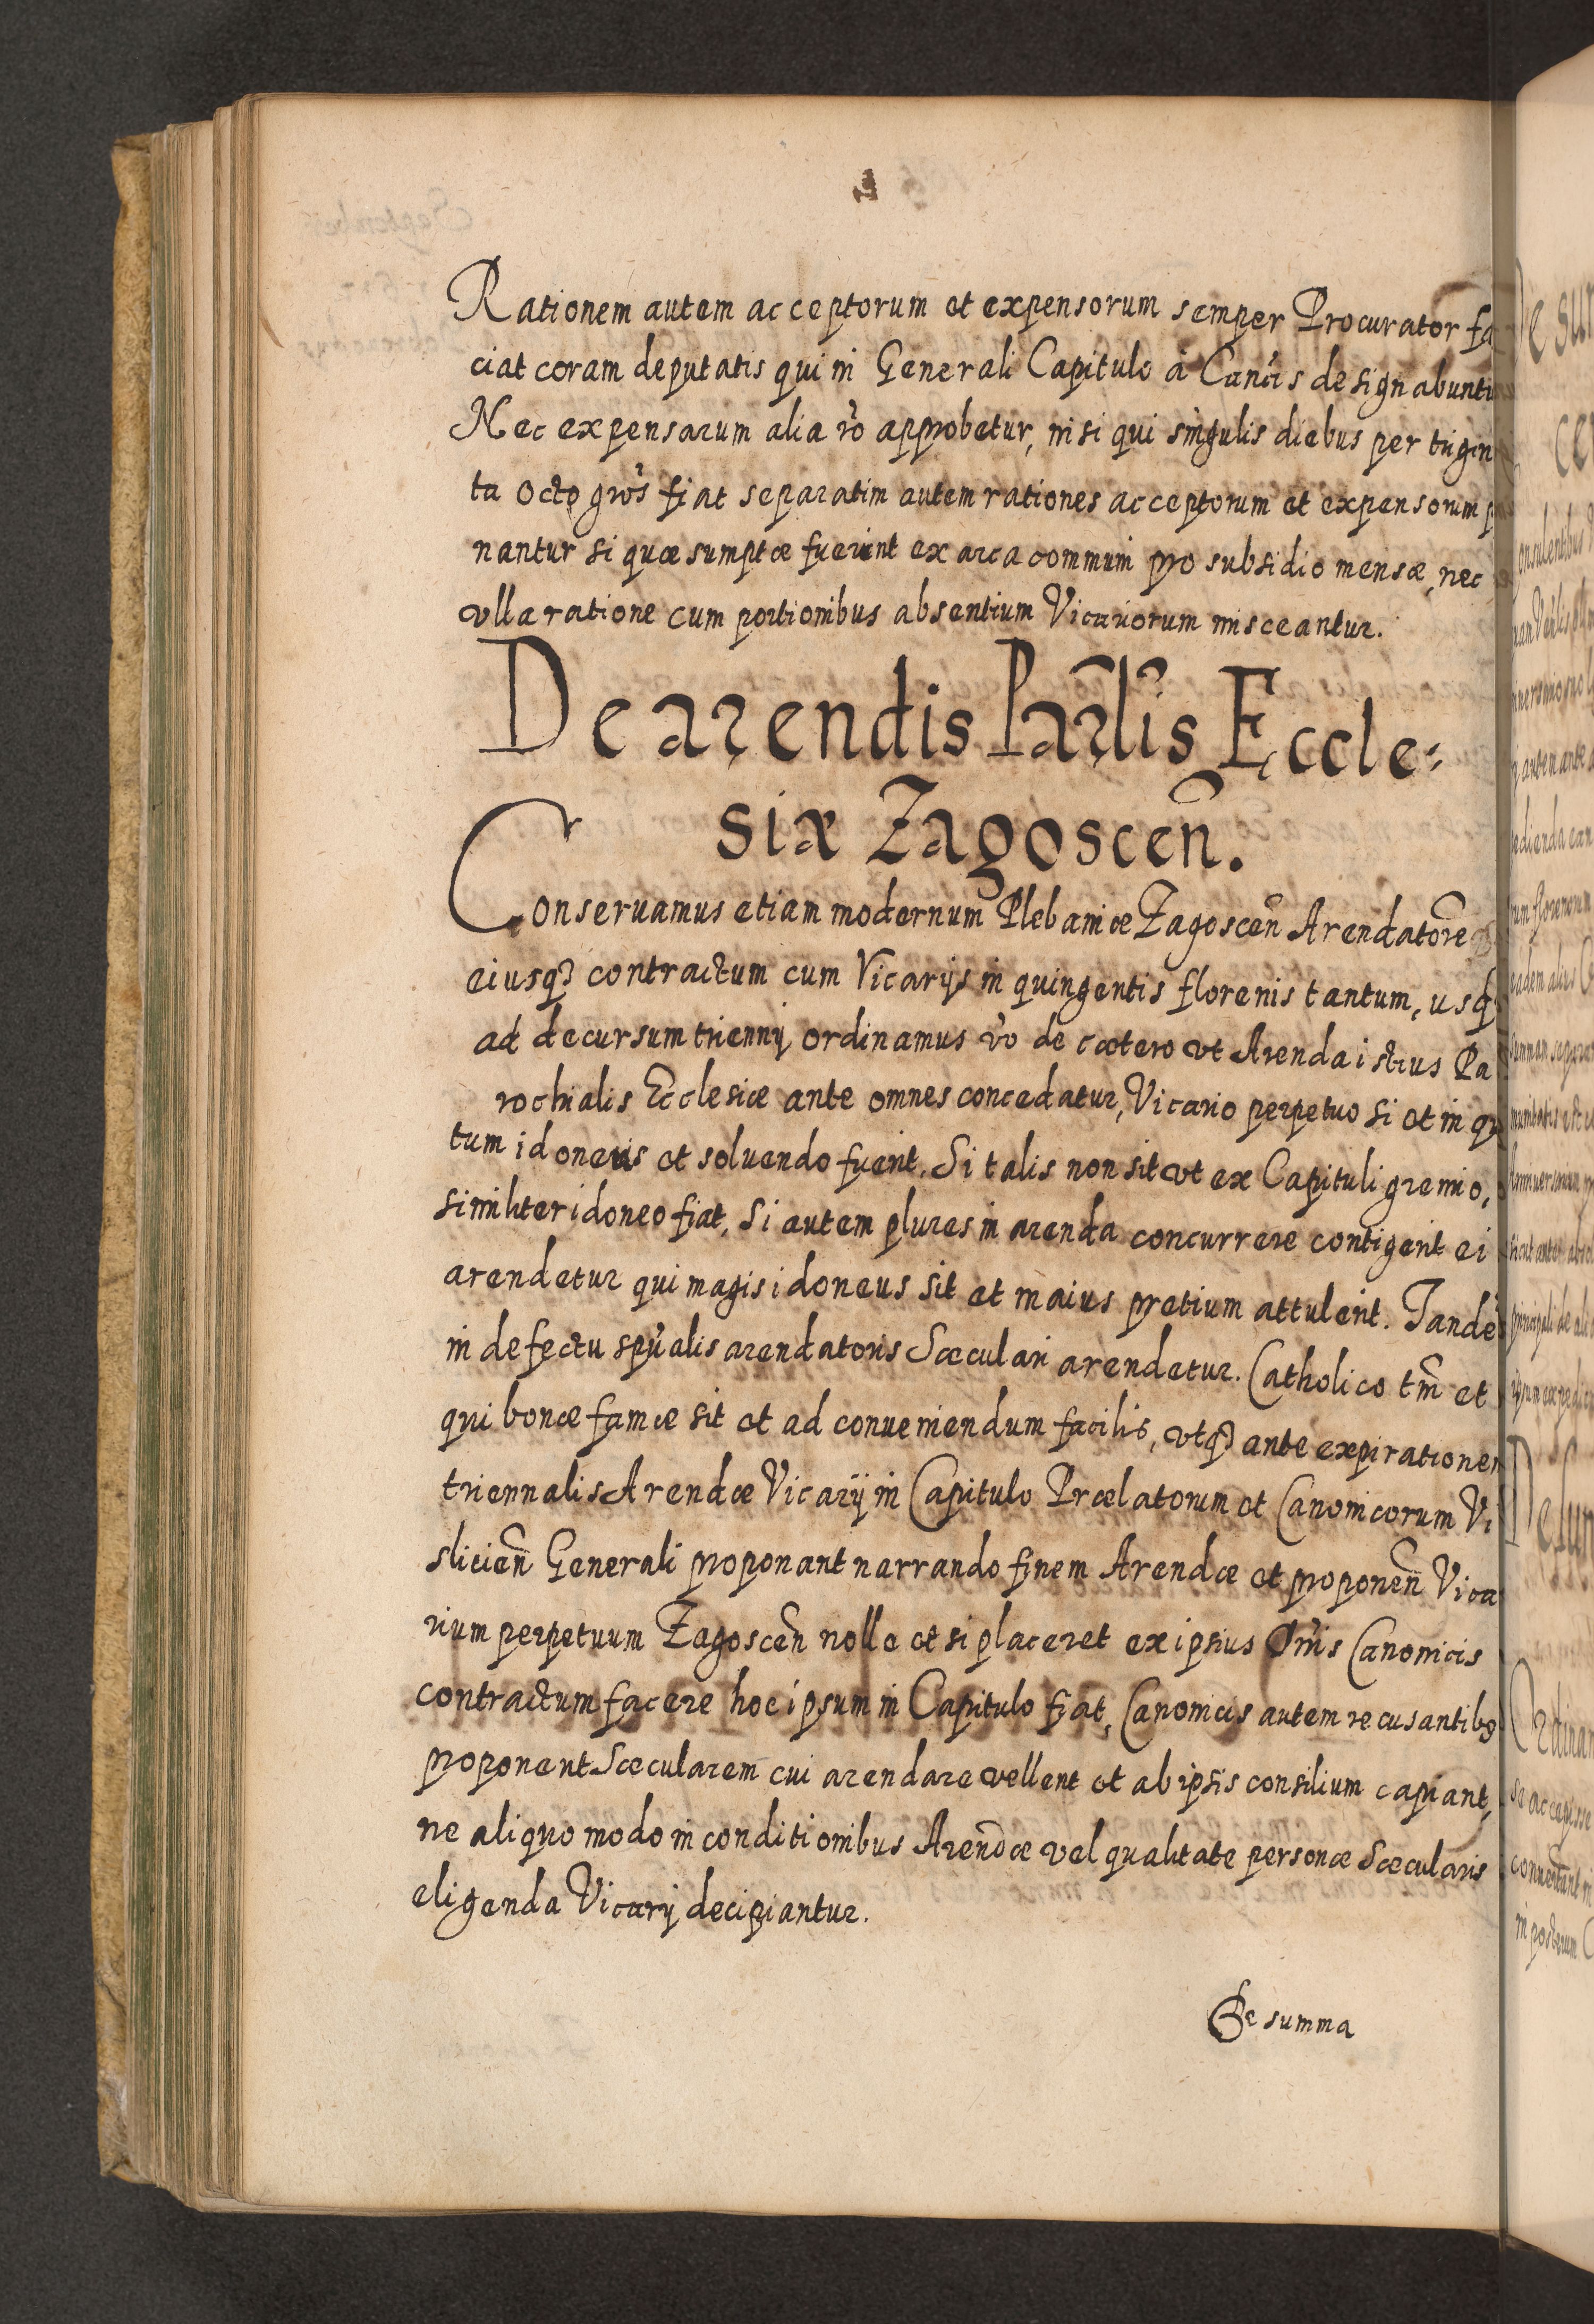 Rationem autem acceptorum et expensorum semper Procurator fa
ciat coram deputatis qui in Generali Capitulo à Canũs designabuntu
Nec expensarum alia rõ approbetur, nisi qui singulis diebus per trigin
ta octo grõs fiat separatim autem rationes acceptorum et expensorum
nantur si quæ sumptæ fuerint ex arca communi pro subsidio mensæ, nec
vlla ratione cum portionibus absentium Vicariorum misceantur.
De arendis Parlĩs Eccle:
siæ Zagoscen̄.
Conseruamus etiam modernum Plebaniæ Zagoscen̄ Arendatorē
eiusq₃ contractum cum Vicarijs in quingentis florenis tantum, usq₃
ad decursum trienny ordinamus v̄o de cætero vt Arenda istius Pa
rochialis Ecclesiæ ante omnes concedatur, Vicario perpetuo si et in qu
tum idoneus et soluendo fuerit. Si talis non sit vt ex Capituli gremio,
similiter idoneo fiat, Si autem plures in arenda concurrere contigerit ei
arendetur qui magis idoneus sit et maius pretium attulerit. Tandē
in defectu spũalis arendatoris Sæculari arendetur. Catholico tm̄ et
qui bonæ famæ sit et ad conueniendum facilis, vtq₃ ante expirationem
triennalis Arendæ Vicarij in Capitulo Prælatorum et Canonicorum Vi
slicien̄ Generali proponant narrando finem Arendæ et proponen̄ Vica
rium perpetuum Zagoscen̄ nolle et si placeret ex ipsius Dn̄is Canonicis
contractum facere hoc ipsum in Capitulo fiat, Canonicis autem recusantibq
proponent Sæcularem cui arendare vellent et ab ipsis consilium capiant,
ne aliquo modo in conditionibus Arendæ vel qualitate personæ Sæcularis
eligenda Vicarij decipiantur.
De summa